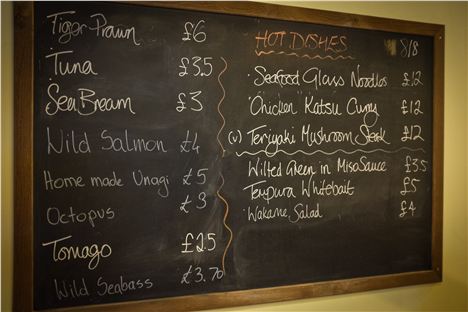 Tiger Prawn £6
Tuna £3.5
Sea Bream £3
Wild Salmon £4
Home made Unagi £5
Octopus £3
Tomago £2.5
Wild Seabass £3.70
HOT DISHES 8/8
Seafood Glass Noodles £12
Chicken Katsu Curry £12
(v) Teriyaki Mushroom Steak £12
Wilted Green in Miso Sauce £3.5
Tempura Whitebait £5
Wakame Salad £4